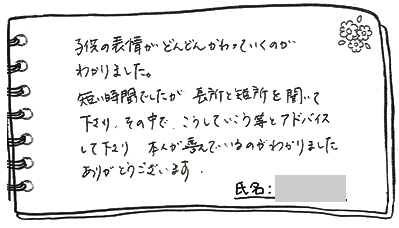 子供の表情がどんどんかわっていくのが
わかりました。
短い時間でしたが 長所と短所を聞いて
下さり、その中で、こうしていこう等とアドバイス
して下さり 本人が喜んでいるのがわかりました
ありがとうございます.
氏名: